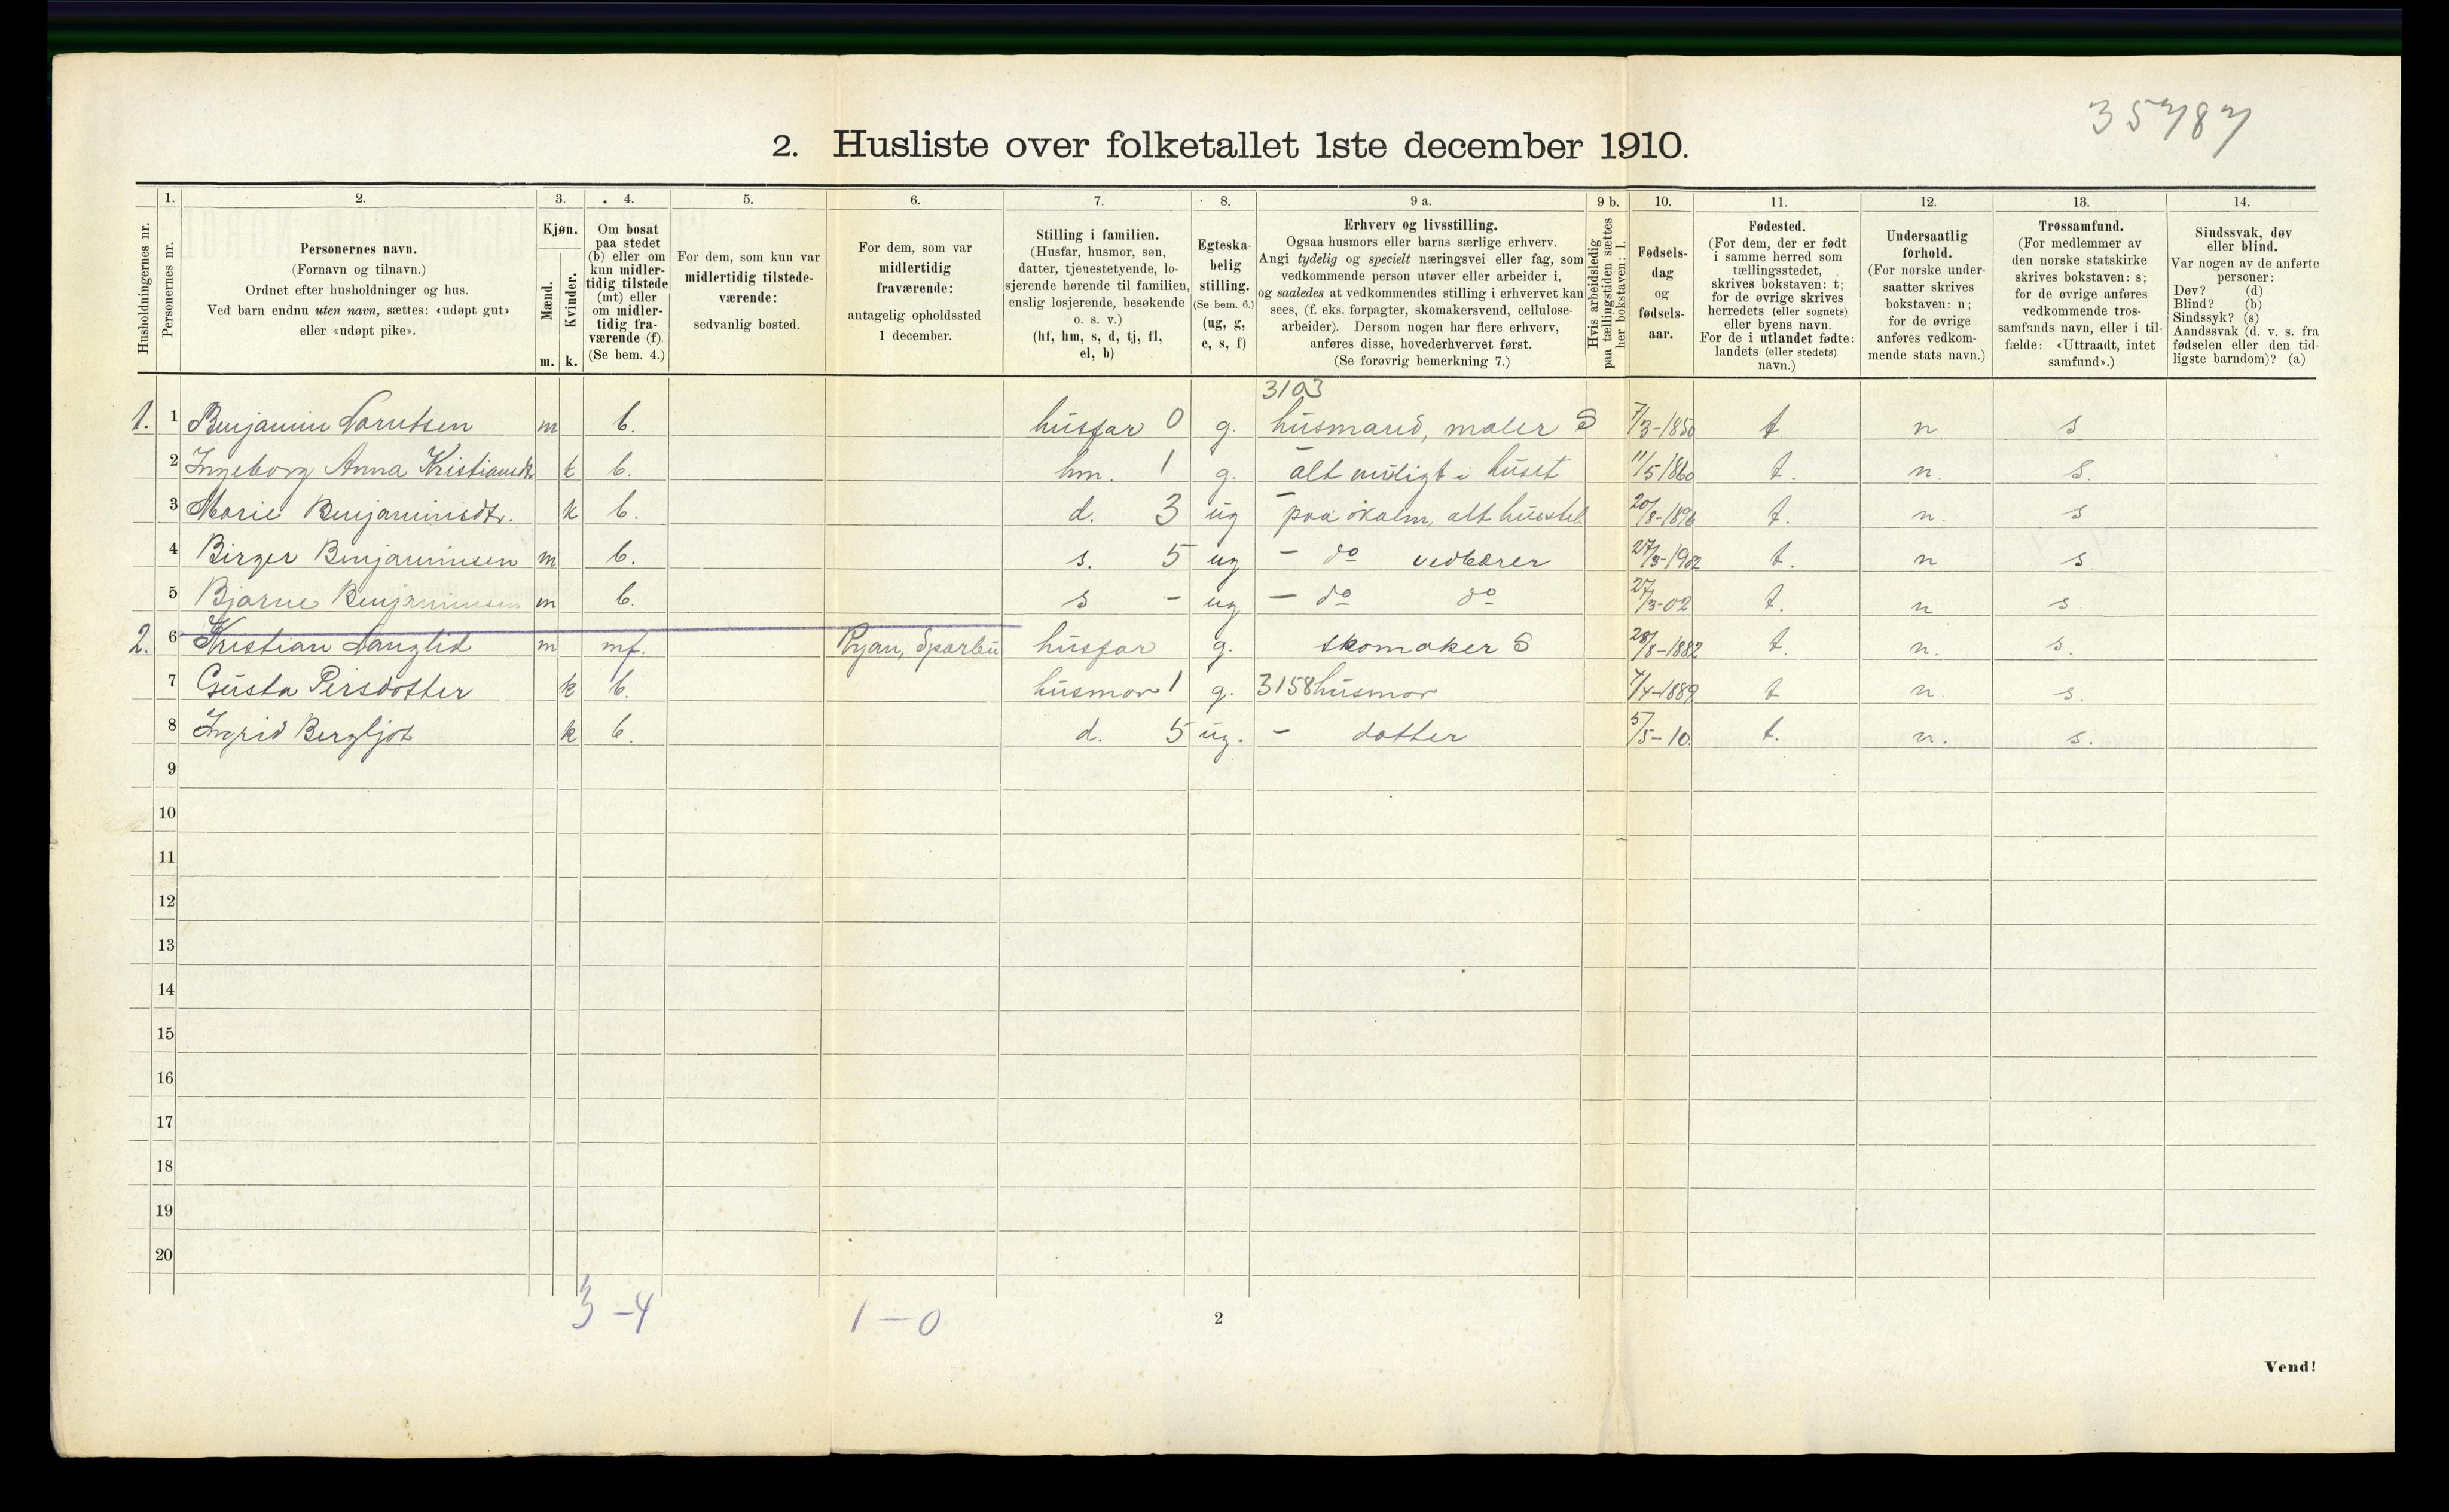 35787
2. Husliste over folketallet 1ste december 1910.
Husholdningernes nr.
1. Personernes nr.
2. Personernes navn. (Fornavn og tilnavn.) Ordnet efter husholdninger og hus. Ved barn endnu uten navn, sættes: «udøpt gut» eller «udøpt pike».
3. Kjøn. Mænd. m. Kvinder. k.
4. Om bosat paa stedet (b) eller om kun midlertidig tilstede (mt) eller om midlertidig fraværende (f). (Se bem. 4.)
5. For dem, som kun var midlertidig tilstedeværende: sedvanlig bosted.
6. For dem, som var midlertidig fraværende: antagelig opholdssted 1 december.
7. Stilling i familien. (Husfar, husmor, søn, datter, tjenestetyende, losjerende hørende til familien, enslig losjerende, besøkende o. s. v.) (hf, hm, s, d, tj, fl, el, b)
8. Egteskabelig stilling. (Se bem. 6.) (ug, g, e, s, f)
9 a. Erhverv og livsstilling. Ogsaa husmors eller barns særlige erhverv. Angi tydelig og specielt næringsvei eller fag, som vedkommende person utøver eller arbeider i, og saaledes at vedkommendes stilling i erhvervet kan sees, (f. eks. forpagter, skomakersvend, cellulosearbeider). Dersom nogen har flere erhverv, anføres disse, hovederhvervet først. (Se forøvrig bemerkning 7.)
9 b. Hvis arbeidsledig paa tællingstiden sættes her bokstaven: l.
10. Fødselsdag og fødselsaar.
11. Fødested. (For dem, der er født i samme herred som tællingsstedet, skrives bokstaven: t; for de øvrige skrives herredets (eller sognets) eller byens navn. For de i utlandet fødte: landets (eller stedets) navn.)
12. Undersaatlig forhold. (For norske undersaatter skrives bokstaven: n; for de øvrige anføres vedkommende stats navn.)
13. Trossamfund. (For medlemmer av den norske statskirke skrives bokstaven: s; for de øvrige anføres vedkommende trossamfunds navn, eller i tilfælde: «Uttraadt, intet samfund».)
14. Sindssvak, døv eller blind. Var nogen av de anførte personer: Døv? (d) Blind? (b) Sindssyk? (s) Aandssvak (d. v. s. fra fødselen eller den tidligste barndom)? (a)
3103
1. 1 Benjamin Larutsen m b. husfar 0 g. husmand, maler S 7/3-1850 t n s
2 Ingeborg Anna Kristiansdt. k b. hm. 1 g. alt muligt i huset 11/5 1860 t. n. s.
3 Marie Benjaminsdtr. k b. d. 3 ug paa , alt husstel 20/8-1896 t. n. s
4 Birger Benjaminsen m b. s. 5 ug - do vedbærer 27/3-1902 t. n s
5 Bjarne Benjaminsen m b. s - ug - do do 27/3-02 t. n s
2. 6 Kristian Langlid m mf. Ryan, Sparbu husfar g. skomaker S 28/8-1882 t. n. s.
7 Gusta Persdotter k b. husmor 1 g. 3158 husmor 7/4-1889 t n. s.
8 Ingrid Bergljot k b. d. 5 ug. - dotter 5/5-10 t. n. s.
9
10
11
12
13
14
15
16
17
18
19
20
3-4 1-0
2
Vend!